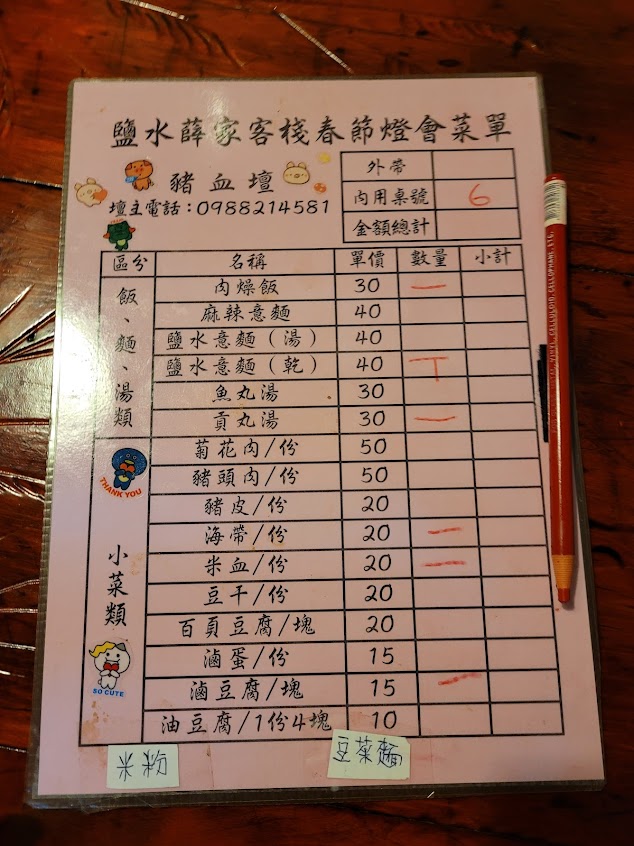 鹽水薛家客棧春節燈會菜單
豬血壇
壇主電話：0988214581
外帶
內用桌號 6
金額總計
區分 名稱 單價 數量 小計
飯、麵、湯類
肉燥飯 30 一
麻辣意麵 40
鹽水意麵（湯） 40
鹽水意麵（乾） 40 丅
魚丸湯 30
貢丸湯 30 一
小菜類
菊花肉/份 50
豬頭肉/份 50
豬皮/份 20
海帶/份 20 一
米血/份 20 一
豆干/份 20
百頁豆腐/塊 20
滷蛋/份 15
滷豆腐/塊 15 一
油豆腐/1份4塊 10
THANK YOU
SO CUTE
米粉
豆菜麵